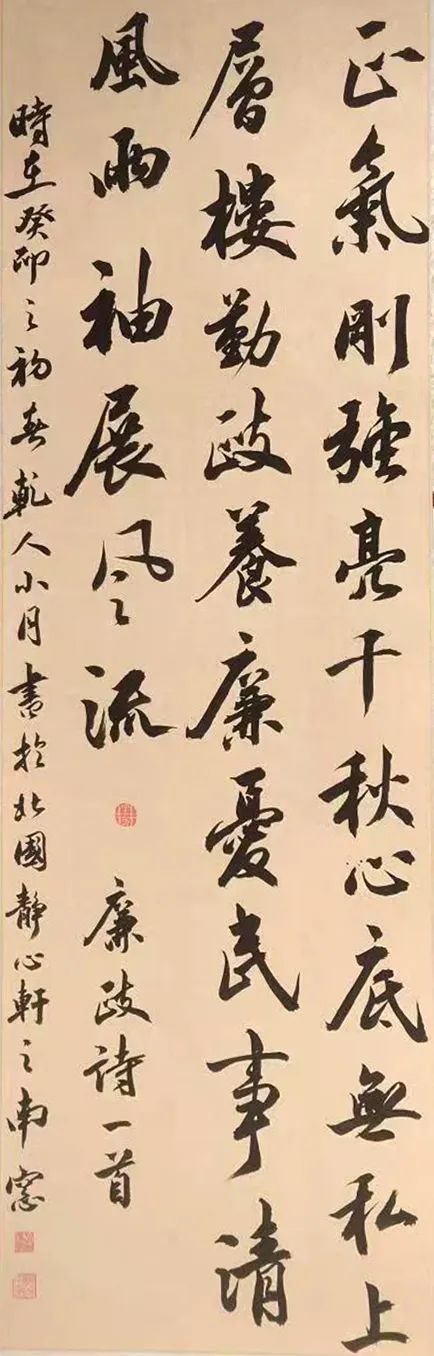 正氣剛強亮千秋心底無私上
層樓勤政養廉憂民事清
風兩袖展风流
廉政詩一首
時在癸卯之初春乾人小月書於北國靜心軒之南窓